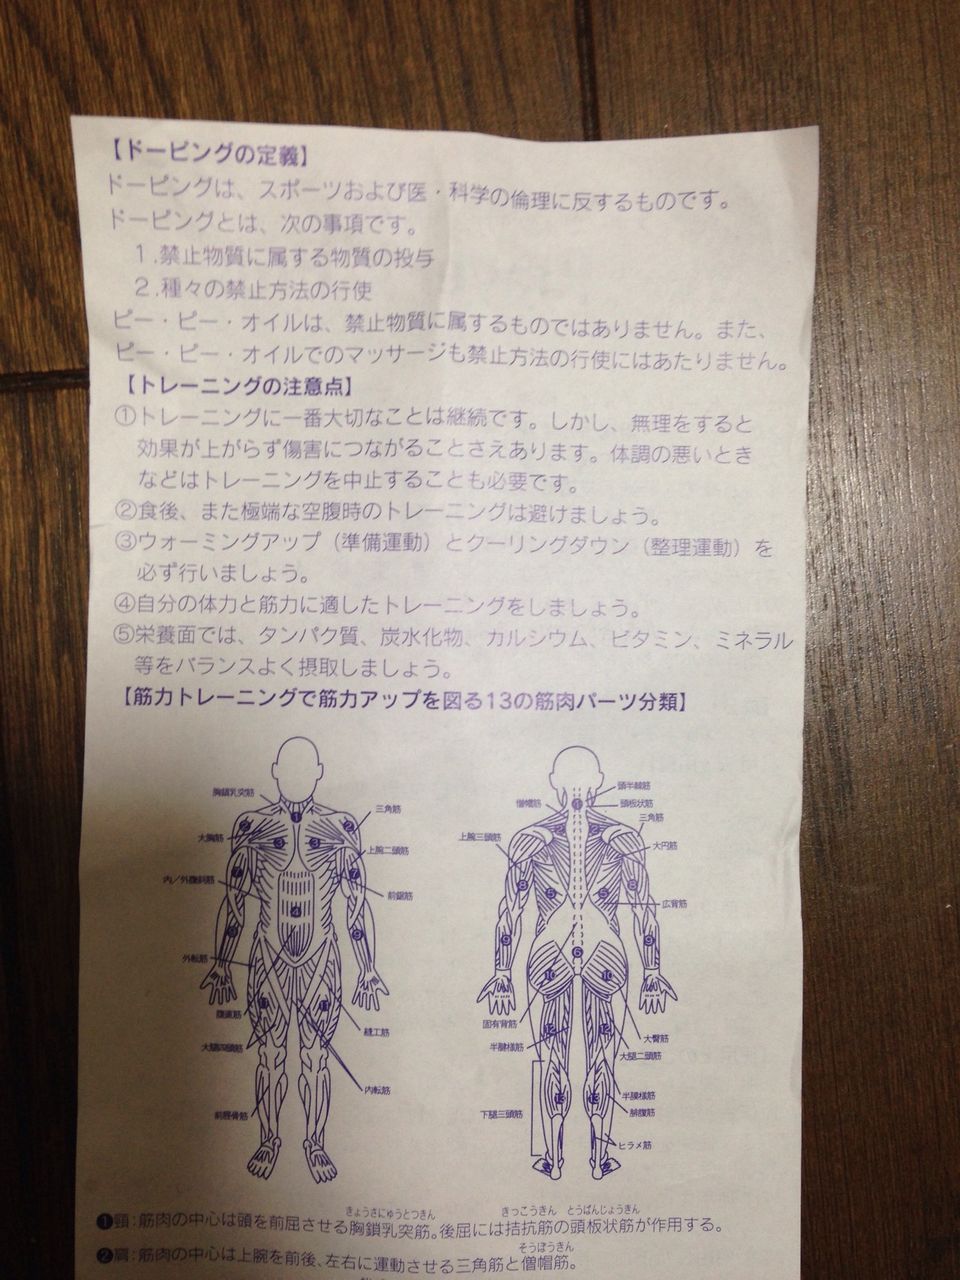 【ドーピングの定義】
ドーピングは、スポーツおよび医・科学の倫理に反するものです。
ドーピングとは、次の事項です。
1.禁止物質に属する物質の投与
2.種々の禁止方法の行使
ピー・ピー・オイルは、禁止物質に属するものではありません。また、
ピー・ピー・オイルでのマッサージも禁止方法の行使にはあたりません。
【トレーニングの注意点】
①トレーニングに一番大切なことは継続です。しかし、無理をすると
効果が上がらず傷害につながることさえあります。体調の悪いとき
などはトレーニングを中止することも必要です。
②食後、また極端な空腹時のトレーニングは避けましょう。
③ウォーミングアップ（準備運動）とクーリングダウン（整理運動）を
必ず行いましょう。
④自分の体力と筋力に適したトレーニングをしましょう。
⑤栄養面では、タンパク質、炭水化物、カルシウム、ビタミン、ミネラル
等をバランスよく摂取しましょう。
【筋力トレーニングで筋力アップを図る13の筋肉パーツ分類】
胸鎖乳突筋
三角筋
大胸筋
上腕二頭筋
内／外腹斜筋
前鋸筋
外転筋
腹直筋
縫工筋
大腿四頭筋
内転筋
前脛骨筋
頭半棘筋
僧帽筋
頭板状筋
三角筋
上腕三頭筋
大円筋
広背筋
固有背筋
大臀筋
半腱様筋
大腿二頭筋
半膜様筋
下腿三頭筋
腓腹筋
ヒラメ筋
きょうさにゅうとつきん
きっこうきん
とうばんじょうきん
❶頸：筋肉の中心は頭を前屈させる胸鎖乳突筋。後屈には拮抗筋の頭板状筋が作用する。
そうぼうきん
❷肩：筋肉の中心は上腕を前後、左右に運動させる三角筋と僧帽筋。